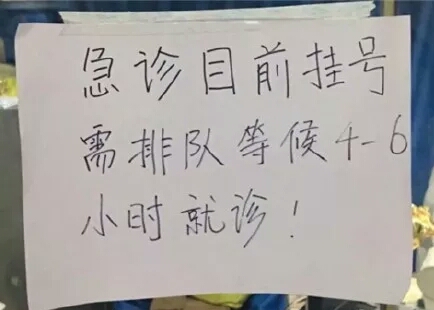 急诊目前挂号
需排队等候4-6
小时就诊！